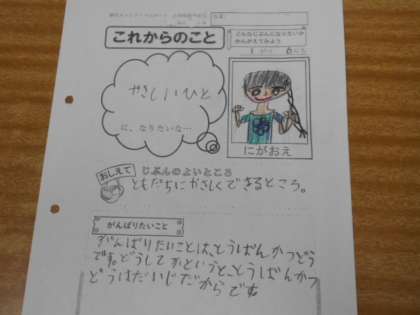 これからのこと
こんなじぶんになりたいな
かんがえてみよう
やさしいひと
に、なりたいな…
にがおえ
おしえて
じぶんのよいところ
ともだちにやさしくできるところ。
がんばりたいこと
がんばりたいことは、とうばんかつどう
です。どうしてかというと、とうばんかつ
どうはだいじだからです